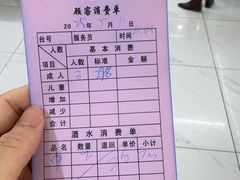 顾客消费单
2025年5月11日
台号 服务员 时间
人数 基本消费
项目 人数 标准 金额
成人 3 298
儿童
增加
减少
合计
酒水消费单
品名 数量 退回 单价 小计